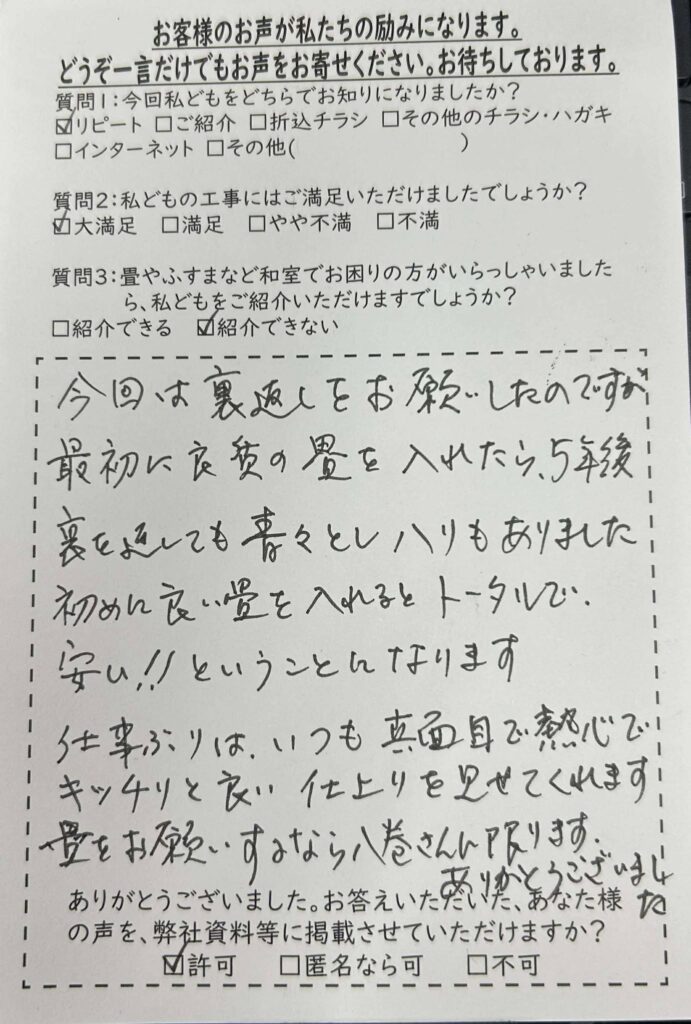 お客様のお声が私たちの励みになります。
どうぞ一言だけでもお声をお寄せください。お待ちしております。
質問1:今回私どもをどちらでお知りになりましたか?
☑リピート □ご紹介 □折込チラシ □その他のチラシ・ハガキ
□インターネット □その他( )
質問2:私どもの工事にはご満足いただけましたでしょうか?
☑大満足 □満足 □やや不満 □不満
質問3:畳やふすまなど和室でお困りの方がいらっしゃいました
ら、私どもをご紹介いただけますでしょうか?
□紹介できる ☑紹介できない
今回は裏返しをお願いしたのですが
最初に良質の畳を入れたら、5年後
裏を返しても青々とし ハリもありました
初めに良い畳を入れるとトータルで、
安い!!ということになります
仕事ぶりは、いつも真面目で熱心で
キッチリと良い仕上りを見せてくれます
畳をお願いするなら八巻さんに限ります。
ありがとうございました
ありがとうございました。お答えいただいた、あなた様
の声を、弊社資料等に掲載させていただけますか?
☑許可 □匿名なら可 □不可